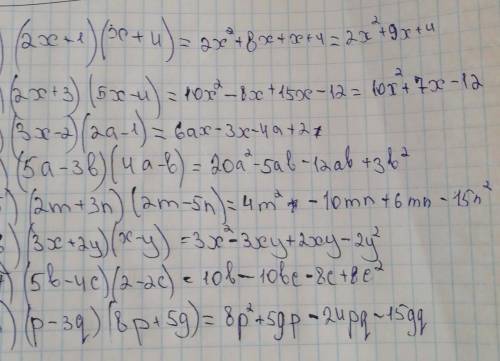 ) (2x+1)(x+4) = 2x²+8x+x+4 = 2x²+9x+4
) (2x+3)(5x-4) = 10x²-8x+15x-12 = 10x²+7x-12
) (3x-2)(2a-1) = 6ax-3x-4a+2
) (5a-3b)(4a-b) = 20a²-5ab-12ab+3b²
) (2m+3n)(2m-5n) = 4m² -10mn+6mn-15n²
) (3x+2y)(x-y) = 3x²-3xy+2xy-2y²
) (5b-4c)(2-2c) = 10b-10bc-8c+8c²
) (p-3q)(8p+5g) = 8p²+5gp-24pq-15gq